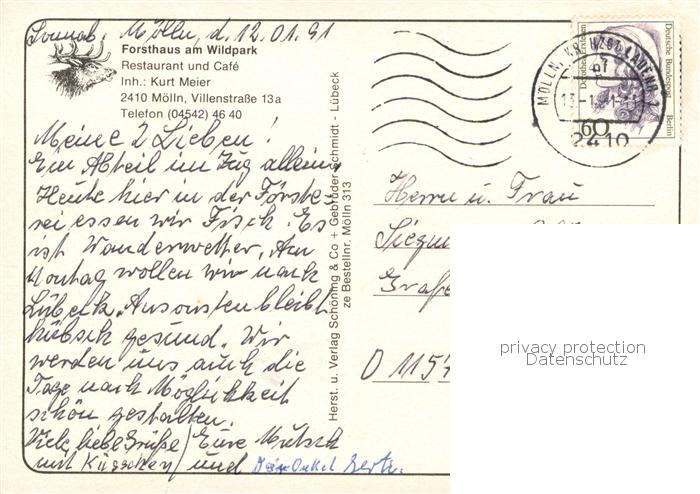 Sonnab. Mölln, d. 12.01.91
Forsthaus am Wildpark
Restaurant und Café
Inh.: Kurt Meier
2410 Mölln, Villenstraße 13a
Telefon (04542) 46 40
Meine 2 Lieben!
Ein Abteil im Zug allein,
Heute hier in der Förste-
rei essen wir Fisch. Es
ist Wanderwetter. Am
Montag wollen wir nach
Lübeck. Ansonsten bleibt
hübsch gesund. Wir
werden uns auch die
Tage nach Möglichkeit
schön gestalten.
Viele liebe Grüße / Eure Mutsch
mit Küsschen / und Dein Onkel
Herst. u. Verlag Schöning & Co + Gebrüder Schmidt - Lübeck
ze Bestellnr. Mölln 313
Deutsche Bundespost
Berlin
Dorothea Erxleben
60
MÖLLN
2410
Herrn u. Frau
O 115
privacy protection
Datenschutz